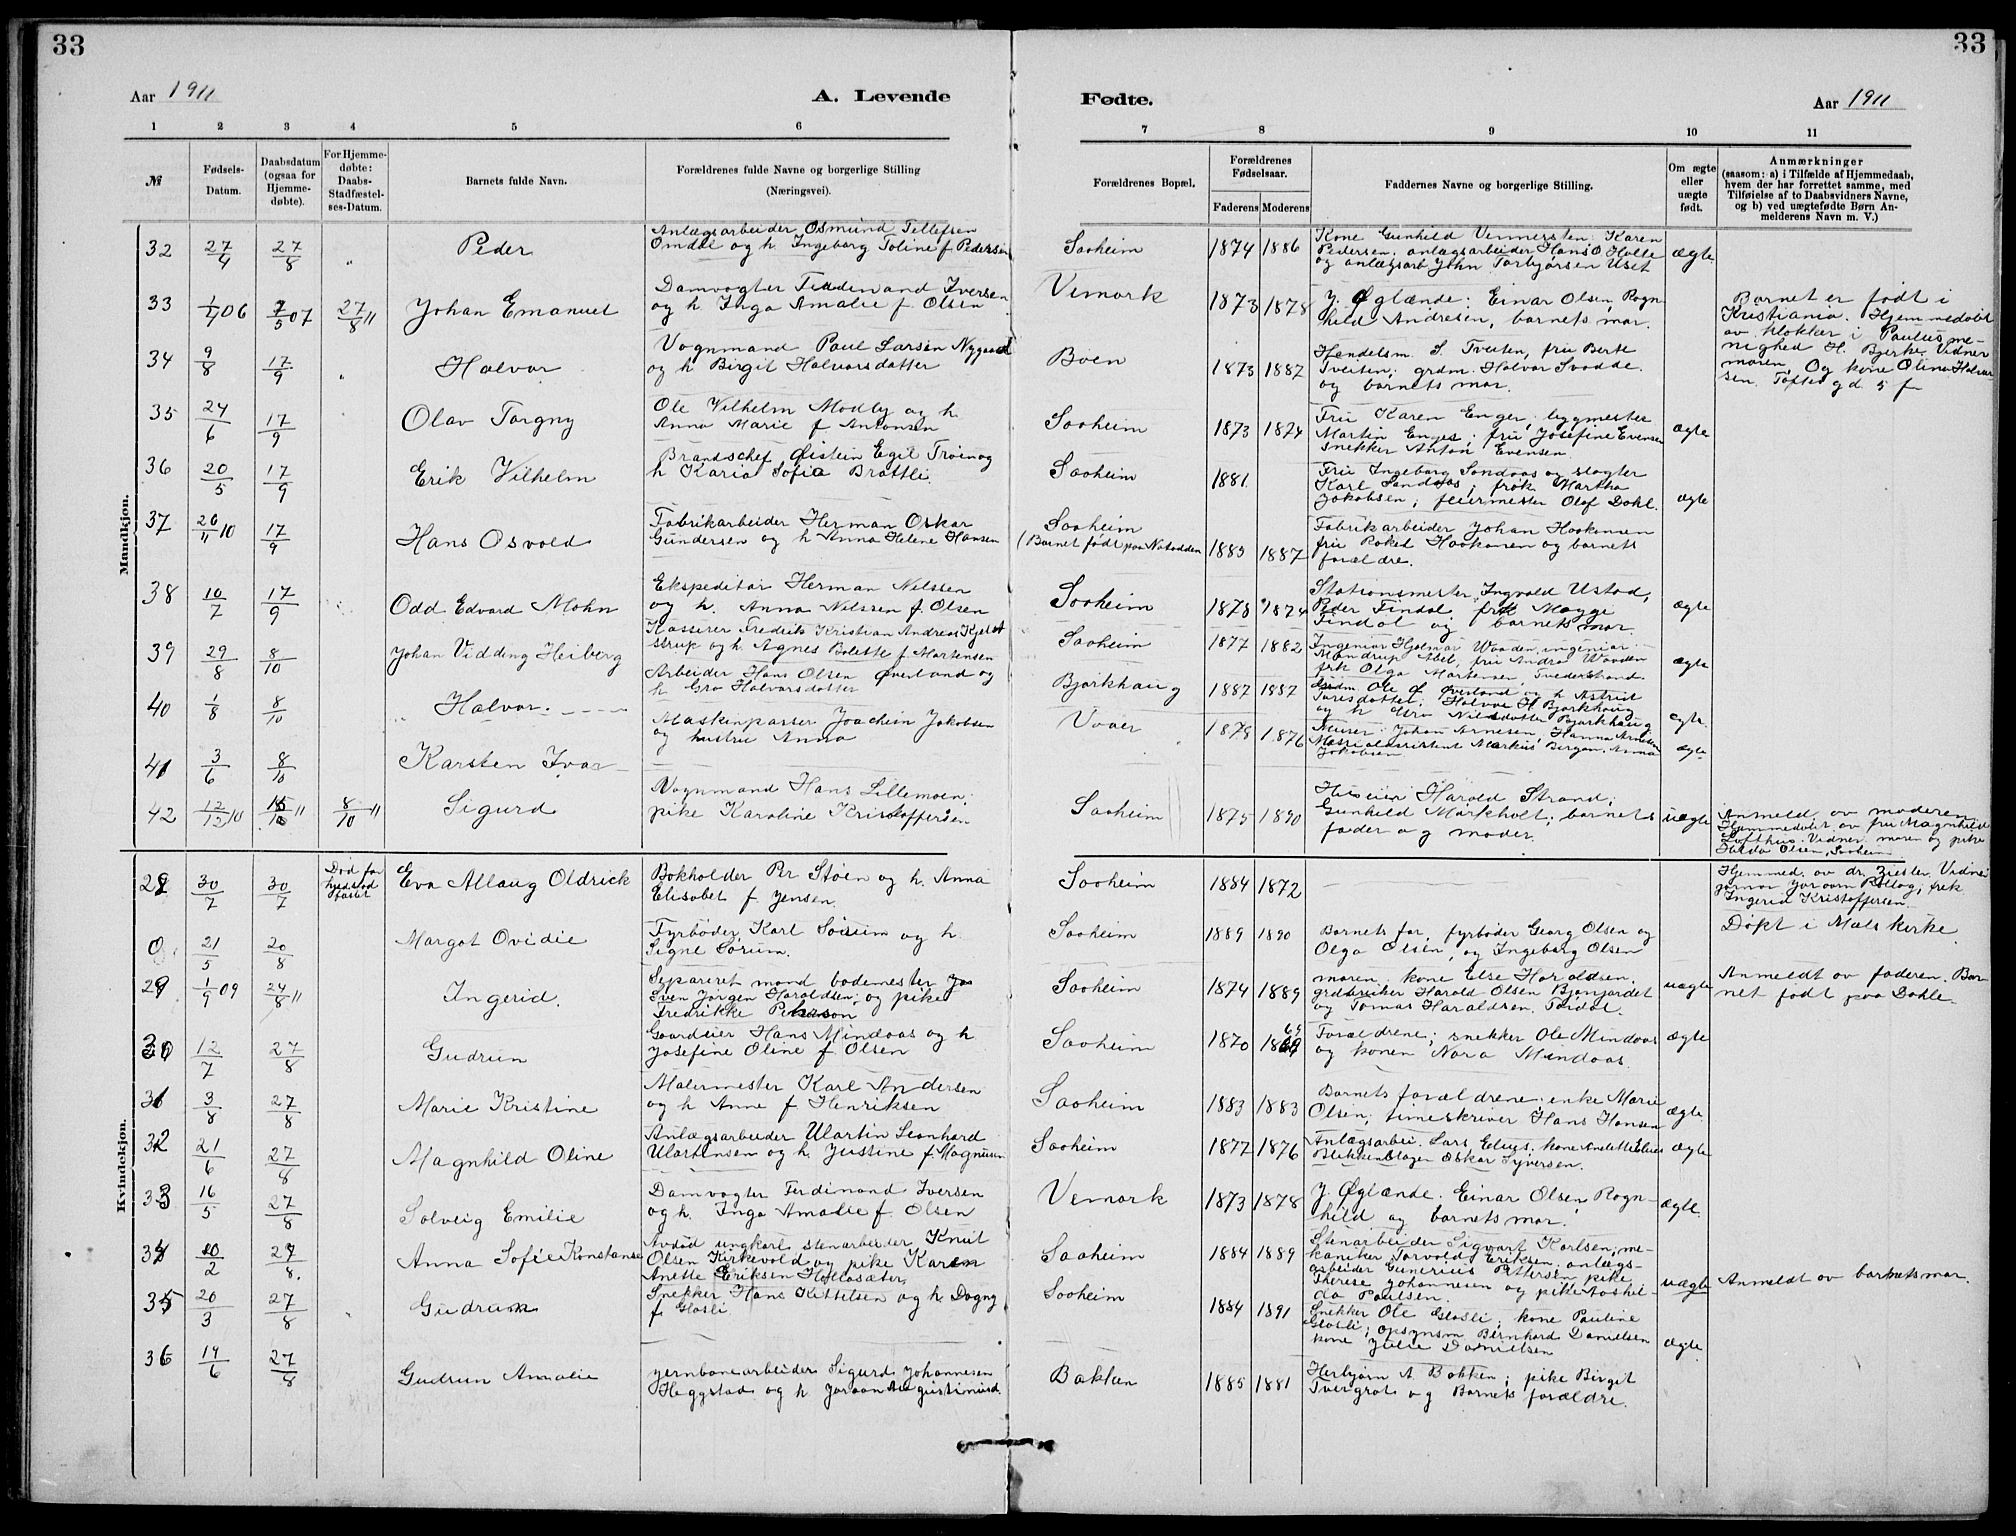 33
33
Aar 1911
A. Levende
Fødte.
Aar 1911
1 2 3 4 5 6
7 8 9 10 11
№
Fødsels-Datum.
Daabsdatum (ogsaa for Hjemmedøbte).
For Hjemmedøbte: Daabs-Stadfæstelses-Datum.
Barnets fulde Navn.
Forældrenes fulde Navne og borgerlige Stilling (Næringsvei).
Forældrenes Bopæl.
Forældrenes Fødselsaar.
Faderens Moderens
Faddernes Navne og borgerlige Stilling.
Om ægte eller uægte født.
Anmærkninger (saasom: a) i Tilfælde af Hjemmedaab, hvem der har forrettet samme, med Tilføielse af to Daabsvidners Navne, og b) ved uægtefødte Børn Anmelderens Navn m. V.)
Mandkjøn.
32 27/4 27/8 Peder
Anlægsarbeider Osmund Tellefsen
Omdal og h. Ingeborg Toline f. Pedersen
Saaheim 1874 1886
Kone Gunhild Vennersten. Karen
Pedersen. anlægsarbeider Hans O Holte
og anlægsarb John Torbjørsen Uset
ægte.
33 1/4 06 7/5 07 27/8 11 Johan Emanuel
Damvogter Ferdinand Iversen
og h. Inga Amalie f. Olsen
Vemork 1873 1878
J. Øglænde; Einar Olsen, Rogn
hild Andresen, barnets mor.
Barnet er født i
Kristiania. Hjemmedøbt
av klokker i Paulus me-
nighed H. Bjerke. Vidner
moren. Og kone Olina Halvor
sen Toftes gd 5 f
34 9/8 17/9 Halvor
Vognmand Paul Larsen Nygaard
og h Birgit Halvorsdatter
Bøen 1873 1887
Handelsm. S. Tveiten, fru Berte
Tveiten; grdm. Halvor Svadde
og barnets mor.
35 24/6 17/9 Olav Torgny
Ole Vilhelm Modly og h.
Anna Marie f Antonsen
Saaheim 1873 1874
Fru Karen Enger; bygmester
Martin Enger; fru Josefine Evensen
snekker Anton Evensen.
ægte
36 20/5 17/9 Erik Vilhelm
Brandschef Øistein Egil Troinog
h Karia Sofia Brattli
Saaheim 1881.
Fru Ingeborg Sandaas og slagter
Karl Sandaas; frøk. Martha
Jakobsen; feiermester Olaf Dahl.
ægte
37 26/11 10 17/9 Hans Osvald
Fabrikarbeider Herman Oskar
Gundersen og h Anna Helene Hansen
Saaheim
(Barnet født paa Notodden
1883 1887
Fabrikarbeider Johan Haakonsen
fru Haakonsen og barnets
forældre.
38 10/7 17/9 Odd Edvard Mohn
Ekspeditør Herman Nilssen
og h. Anna Nilssen f. Olsen
Saaheim 1878 1874
Stationsmester Ingvald Ustad,
Peder Tindal, frk Magge
Tindal og barnets mor.
ægte
39 29/8 8/10 Johan Vidding Heiberg
Kasserer Fredrik Kristian Andreas Kjeld
strup og h. Agnes Bolette f. Mortensen
Saaheim 1877 1882
Ingeniør Hjalmar Waaden, ingeniør
Mandrup Abel, fru Andra Waaden
frk Olga Mortensen, Tvedestrand.
ægte
40 1/8 8/10 Halvor.
Arbeider Hans Olsen Øverland og
h Gro Halvorsdatter
Bjørkhaug 1887 1887
Grdm Ole Ø. Øverland og h Astrid
Turisdatter; Halvor H Bjørkhaug
og h Gro Nilsdatter Bjørkhaug
ægte.
41 3/6 8/10 Karsten Ivar
Maskinpasser Joachim Jakobsen
og hustru Anna
Vaaer 1878 1876
Fruer: Johan Arnesen, Hanna Arnesen
Materialassistent Markus Bergan. Anna
Jakobsen
ægte
42 12/12 10 15/10 11 8/10 11 Sigurd
Vognmand Hans Lillemoen;
pike Karoline Kristoffersen
Saaheim 1875 1890
Huseier Harald Strand;
Gunhild Markholt; barnets
fader og moder.
uægte
Anmeld. av moderen.
Hjemmedøbt av fru Magnhild
Lofthus. Vidner: moren og pike
Hulda Olsen, Saaheim
Kvindekjøn.
28 30/7 30/7
Død før
hjstad
fæstet
Eva Allaug Oldrick
Bokholder Per Støen og h. Anna
Elisabet f Jensen.
Saaheim 1884 1872
Hjemmed. av dr. Ziesler. Vidner
jormor Joraam Rollag; frøk
Ingerid Kristoffersen.
0 21/5 20/8 Margot Ovidie
Fyrbøder Karl Sørum og h.
Signe Sørum.
Saaheim 1889 1890
Barnets far, fyrbøder Georg Olsen og
Olga Olsen, og Ingeborg Olsen
Døpt i Mæls kirke
29 1/9 09 24/8 11 Ingerid.
Separeret mand bademester
Even Jørgen Haraldsen; og pike
Fredrikke Pederson
Saaheim 1874 1889
moren. kone Else Haraldsen.
grdbruker Harald Olsen Bjønjordet
og Tomas Haraldsen. Tuddal.
uægte
Anmeldt av faderen. Bar
net født paa Dahle.
30 12/7 27/8 Gudrun
Gaardeier Hans Mindaas og h
Josefine Oline f. Olsen
Saaheim 1870 1869
Forældrene; snekker Ole Mindaas
og konen Nora Mindaas.
ægte
31 3/8 27/8 Marie Kristine
Malermester Karl Andersen
og h Anne f Henriksen
Saaheim 1883 1883
Barnets forældrene; enke Marie
Olsen; timeskriver Hans Hansen
ægte.
32 21/6 27/8 Magnhild Oline
Anlægsarbeider Martin Leonhard
Martensen og h. Justine f. Magnusen
Saaheim 1877 1876
Anlægsarbei. Lars Elias. kone Anette Elias
Blikkenslager Oskar Syversen.
ægte
33 16/5 27/8 Solveig Emilie
Damvogter Ferdinand Iversen
og h. Inga Amalie f. Olsen
Vemork 1873 1878
J. Øglænde. Einar Olsen, Rogn-
hild og barnets mor.
ægte.
34 20/2 27/8. Anna Sofie Konstanse
Avdød ungkarl stenarbeider Knut
Olsen Kirkevold og pike Karen
Anette Eriksen Hollasæter
Saaheim 1884 1889
Stenarbeider Sigvart Karlsen; me-
kaniker Torvald Eriksen. anlægs-
arbeider Gunerius Pettersen pike
Therese Johannesen og pike Aashil-
da Paulsen.
uægte
Anmeldt av barnets mor.
35 20/3 27/8 Gudrun
Snekker Hans Kittelsen og h. Dagny
f Glosli.
Saaheim 1884 1891
Snekker Ole Glosli; kone Pauline
Glosli; opsynsm Bernhard Danielsen
kone Julie Danielsen
ægte.
36 14/6 27/8 Gudrun Amalie
Jernbanearbeider Sigurd Johannesen
Heggstad og h Joraan Augustinusd.
Bakken 1885 1881
Herbjørn A. Bakken; pike Birgit
Tvergrot og Barnets forældre.